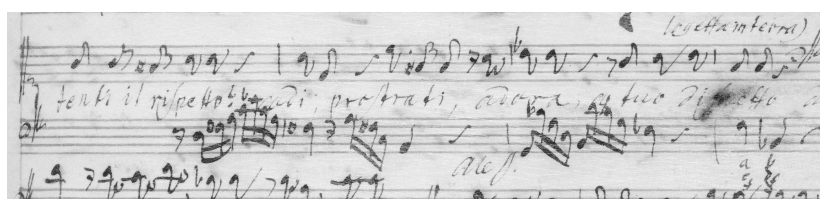 (e getta in terra)
tenti il rispetto: cadi, prostrati, adora, a tuo dispetto a
Aless.